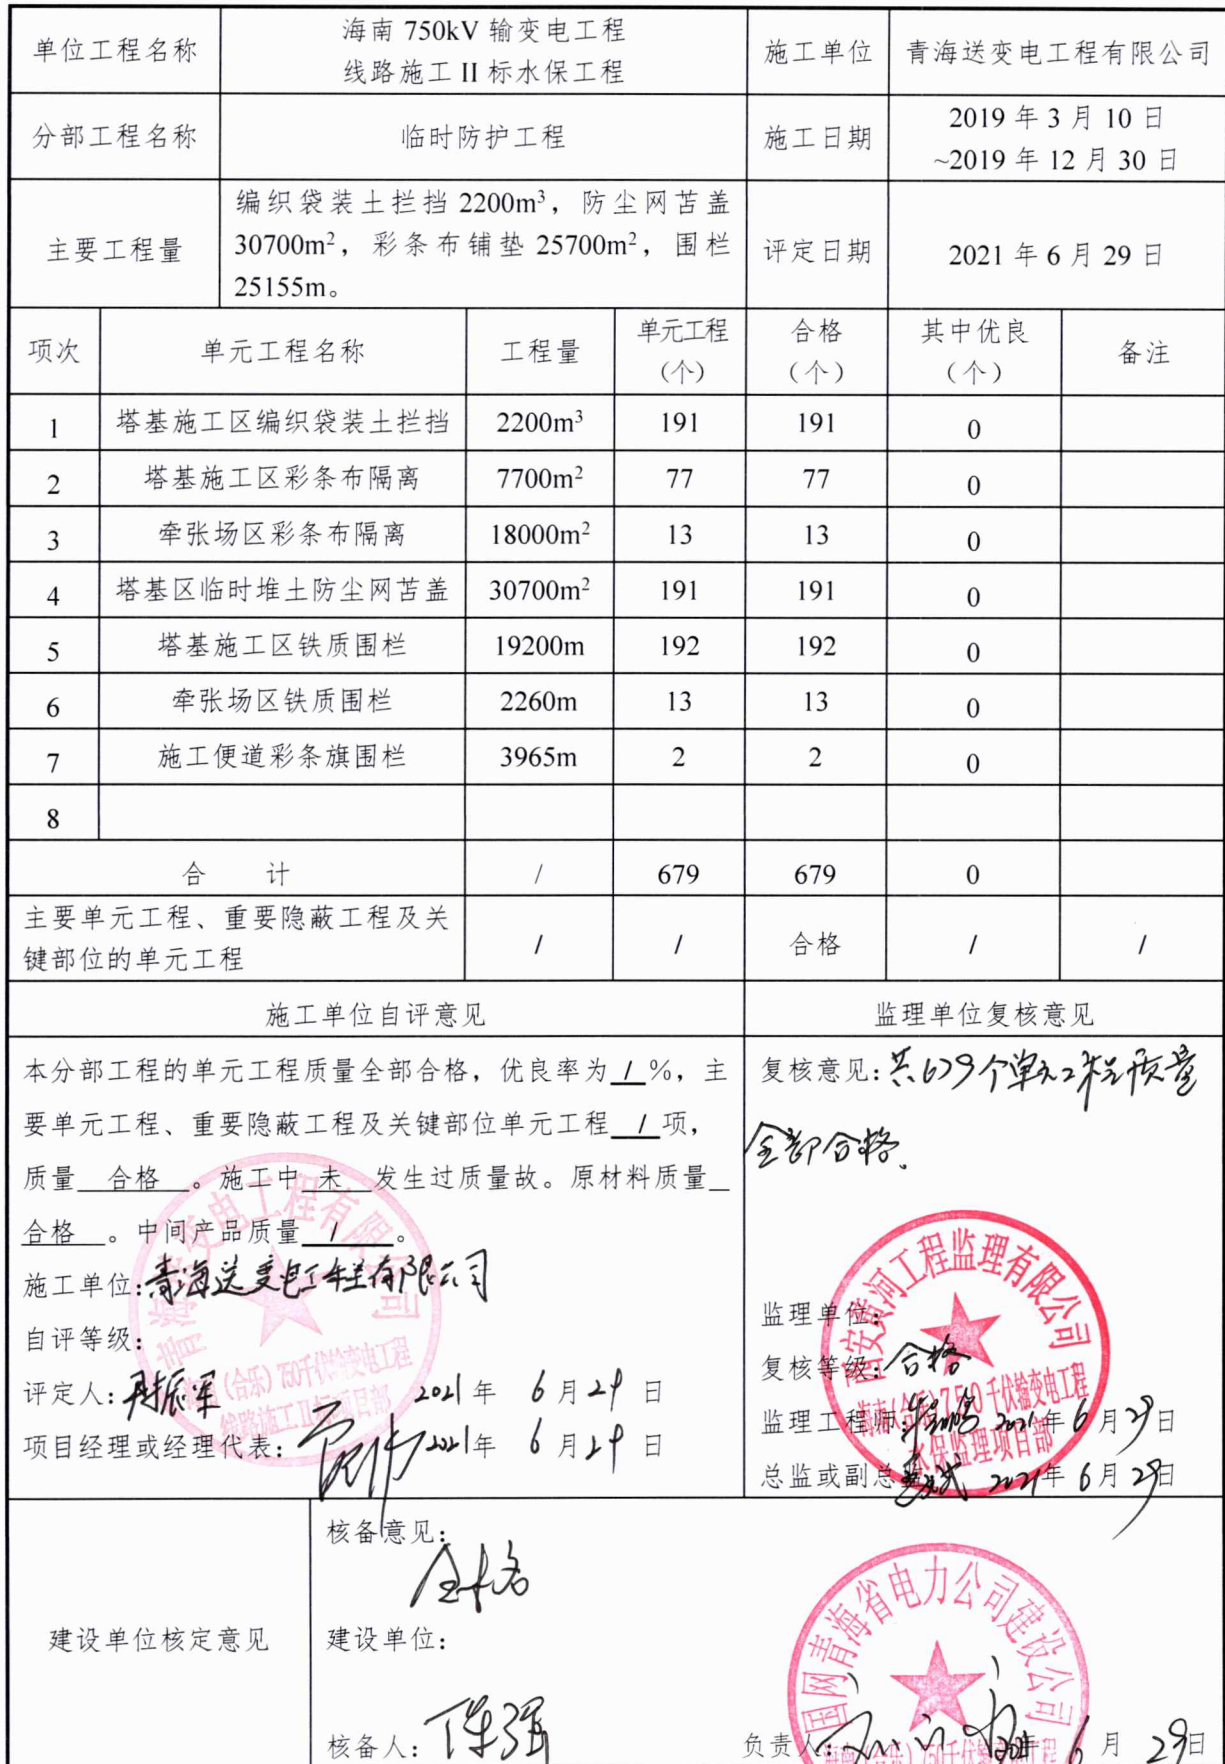 单位工程名称
海南 750kV 输变电工程
线路施工 II 标水保工程
施工单位
青海送变电工程有限公司
分部工程名称
临时防护工程
施工日期
2019 年 3 月 10 日
~2019 年 12 月 30 日
主要工程量
编织袋装土拦挡 2200m³，防尘网苫盖
30700m²，彩条布铺垫 25700m²，围栏
25155m。
评定日期
2021 年 6 月 29 日
项次 单元工程名称 工程量 单元工程（个） 合格（个） 其中优良（个） 备注
1 塔基施工区编织袋装土拦挡 2200m³ 191 191 0
2 塔基施工区彩条布隔离 7700m² 77 77 0
3 牵张场区彩条布隔离 18000m² 13 13 0
4 塔基区临时堆土防尘网苫盖 30700m² 191 191 0
5 塔基施工区铁质围栏 19200m 192 192 0
6 牵张场区铁质围栏 2260m 13 13 0
7 施工便道彩条旗围栏 3965m 2 2 0
8
合 计 / 679 679 0
主要单元工程、重要隐蔽工程及关
键部位的单元工程
/ / 合格 / /
施工单位自评意见
监理单位复核意见
本分部工程的单元工程质量全部合格，优良率为 / %，主
要单元工程、重要隐蔽工程及关键部位单元工程 / 项，
质量 合格 。施工中 未 发生过质量故。原材料质量
合格 。中间产品质量 / 。
施工单位：青海送变电工程有限公司
自评等级：
评定人： 2021 年 6 月 29 日
项目经理或经理代表： 2021 年 6 月 29 日
青海送变电工程有限公司
（合乐）750千伏输变电工程
线路施工II标项目部
复核意见：共679个单元工程质量
全部合格.
监理单位：
复核等级：合格
监理工程师： 2021 年 6 月 29 日
总监或副总 2021 年 6 月 29 日
西安黄河工程监理有限公司
海南（合乐）750千伏输变电工程
水保监理项目部
建设单位核定意见
核备意见：
合格
建设单位：
核备人： 陈强
负责人： 6 月 29 日
国网青海省电力公司建设公司
海南（合乐）750千伏输变电工程